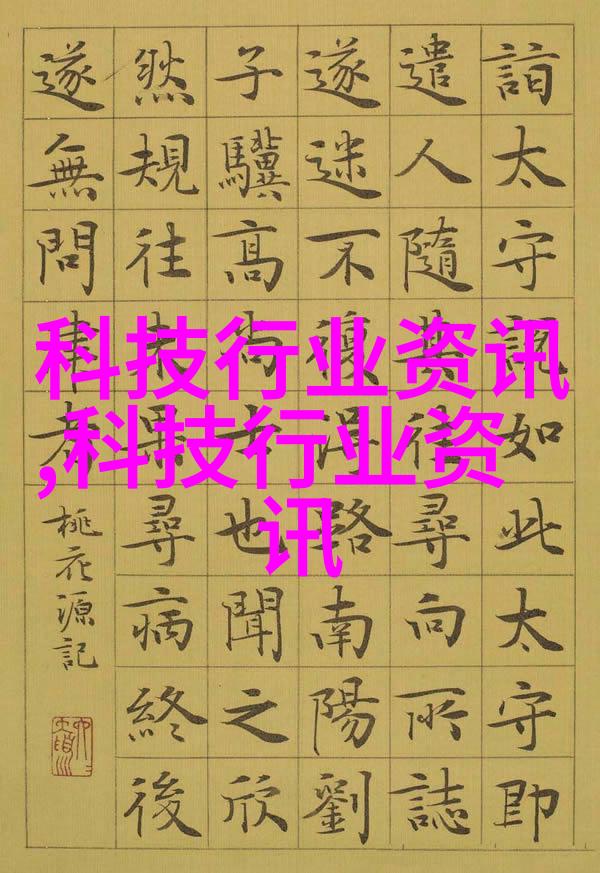 科技行业资讯
,科技行业资
讯
詣太守說如此太守即
遣人隨其往尋向所誌
遂迷不復得路南陽劉
子驥高尚士也聞之欣
然規往未果尋病終後
遂無問津者
桃花源記